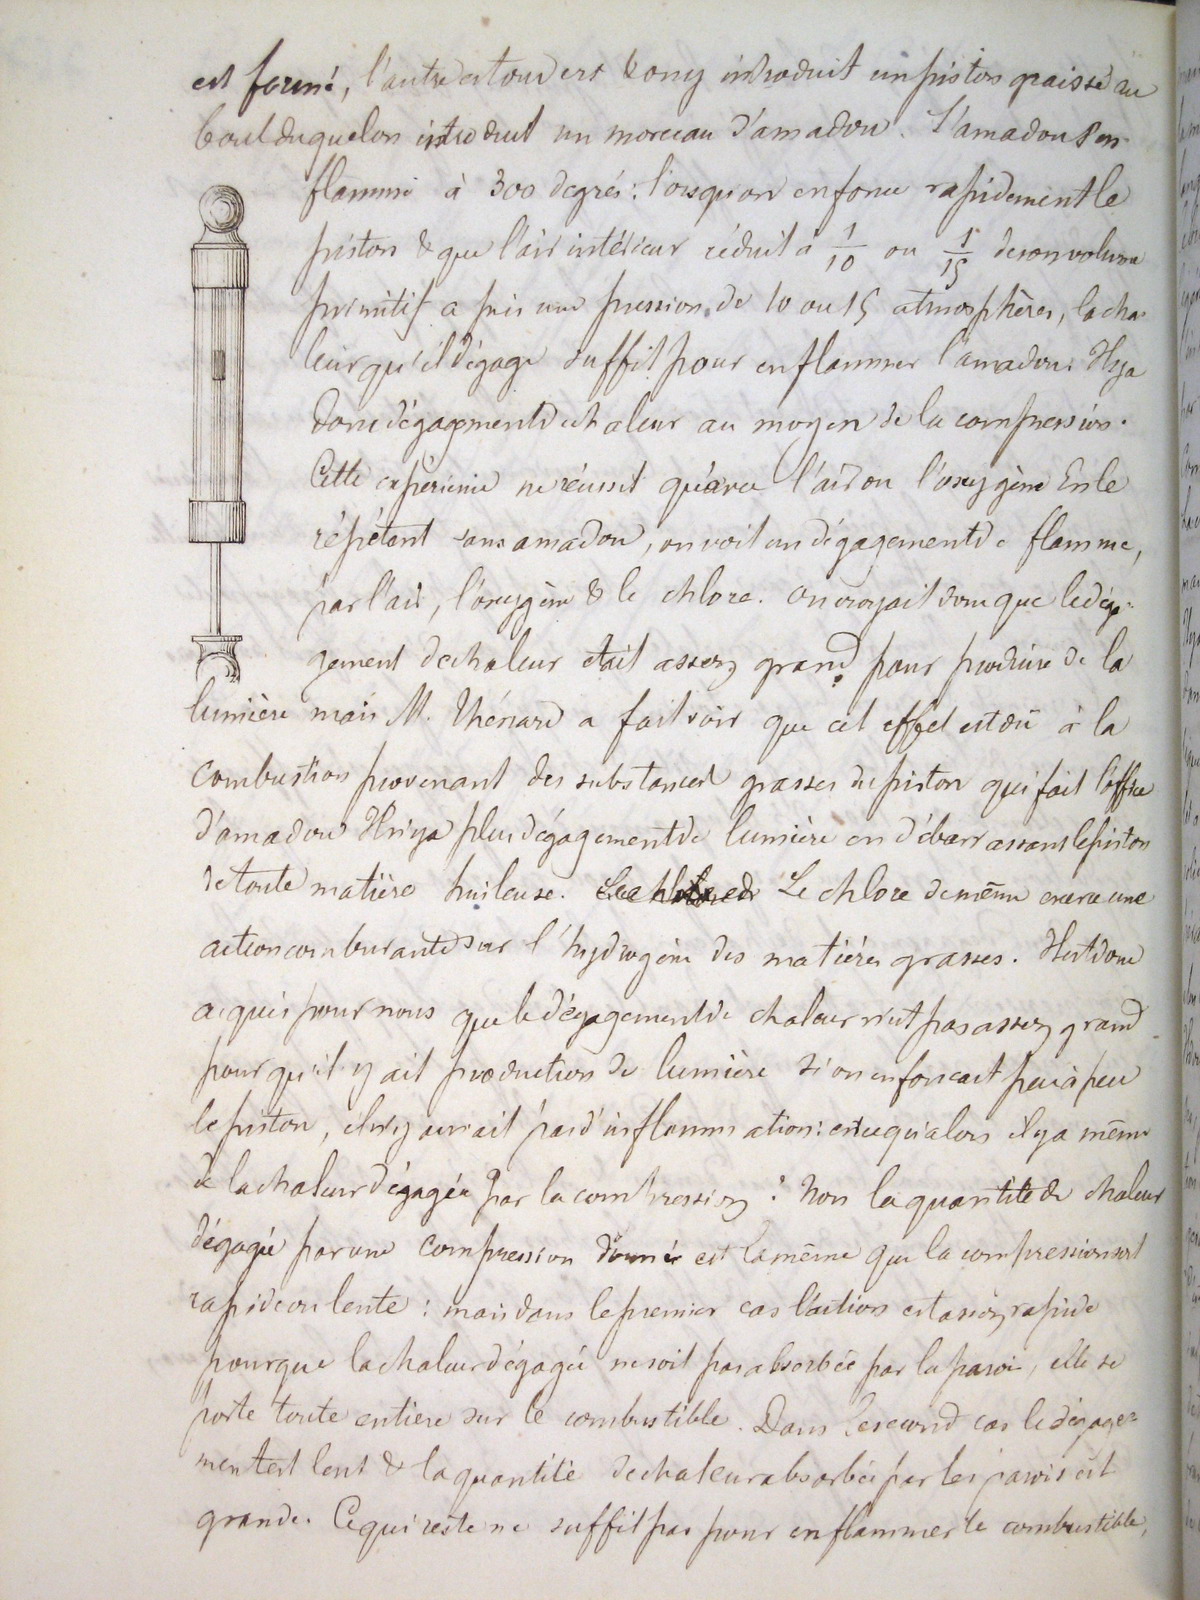 est fermé, l'autre est ouvert & on y introduit un piston graissé au
bout duquel on introduit un morceau d'amadou. L'amadou s'en-
flamme à 300 degrés : lorsqu'on enfonce rapidement le
piston & que l'air intérieur réduit à 1/10 ou 1/15 de son volume
primitif a pris une pression de 10 ou 15 atmosphères, la cha-
leur qu'il dégage suffit pour enflammer l'amadou. Il y a
donc dégagement de chaleur au moyen de la compression.
Cette expérience ne réussit qu'avec l'air ou l'oxygène En le
répétant sans amadou, on voit un dégagement de flamme,
par l'air, l'oxygène & le chlore. On croyait donc que le déga-
gement de chaleur était assez grand pour produire de la
lumière mais M. Thénard a fait voir que cet effet est dû à la
combustion provenant des substances grasses du piston qui fait l'office
d'amadou Il n'y a plus dégagement de lumière en débarrassant le piston
de toute matière huileuse. Le chlore de même exerce une
action comburante sur l'hydrogène des matières grasses. Il est donc
acquis pour nous que le dégagement de chaleur n'est pas assez grand
pour qu'il y ait production de lumière si on enfoncait peu à peu
le piston, il n'y aurait pas d'inflammation : est ce qu'alors il y a même
de la chaleur dégagée par la compression ? Non la quantité de chaleur
dégagée par une compression donnée est la même que la compression soit
rapide ou lente : mais dans le premier cas l'action est assez rapide
pour que la chaleur dégagée ne soit pas absorbée par la paroi, elle se
porte toute entière sur le combustible. Dans le second cas le dégage-
ment est lent & la quantité de chaleur absorbée par les parois est
grande. Ce qui reste ne suffit pas pour enflammer le combustible,